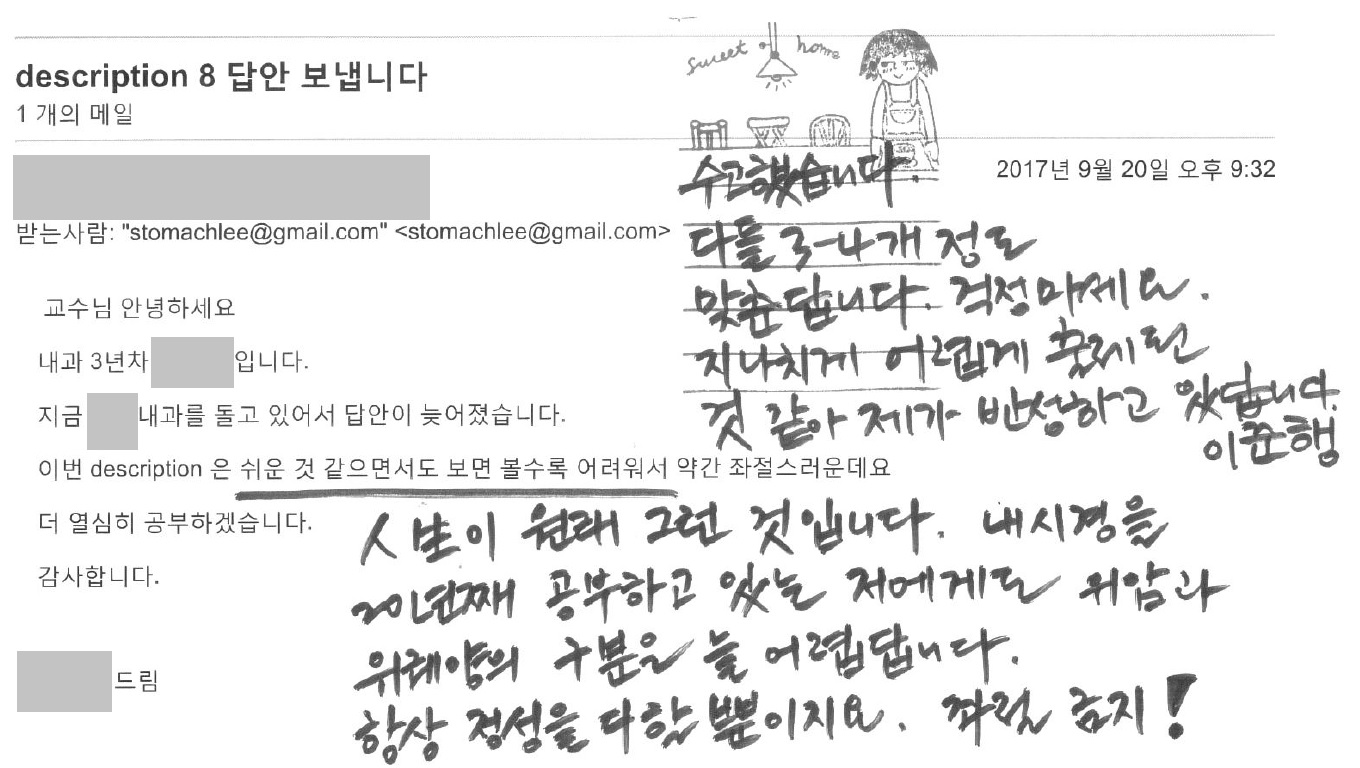 sweet home
description 8 답안 보냅니다
1 개의 메일
2017년 9월 20일 오후 9:32
받는사람: "stomachlee@gmail.com" <stomachlee@gmail.com>
수고했습니다.
다들 3-4개 정도
맞춘답니다. 걱정마세요.
지나치게 어렵게 출제된
것 같아 제가 반성하고 있답니다.
이준행
교수님 안녕하세요
내과 3년차 입니다.
지금 내과를 돌고 있어서 답안이 늦어졌습니다.
이번 description 은 쉬운 것 같으면서도 보면 볼수록 어려워서 약간 좌절스러운데요
더 열심히 공부하겠습니다.
감사합니다.
드림
人生이 원래 그런 것입니다. 내시경을
20년째 공부하고 있는 저에게도 위암과
위궤양의 구분은 늘 어렵답니다.
항상 정성을 다할 뿐이지요. 좌절 금지!